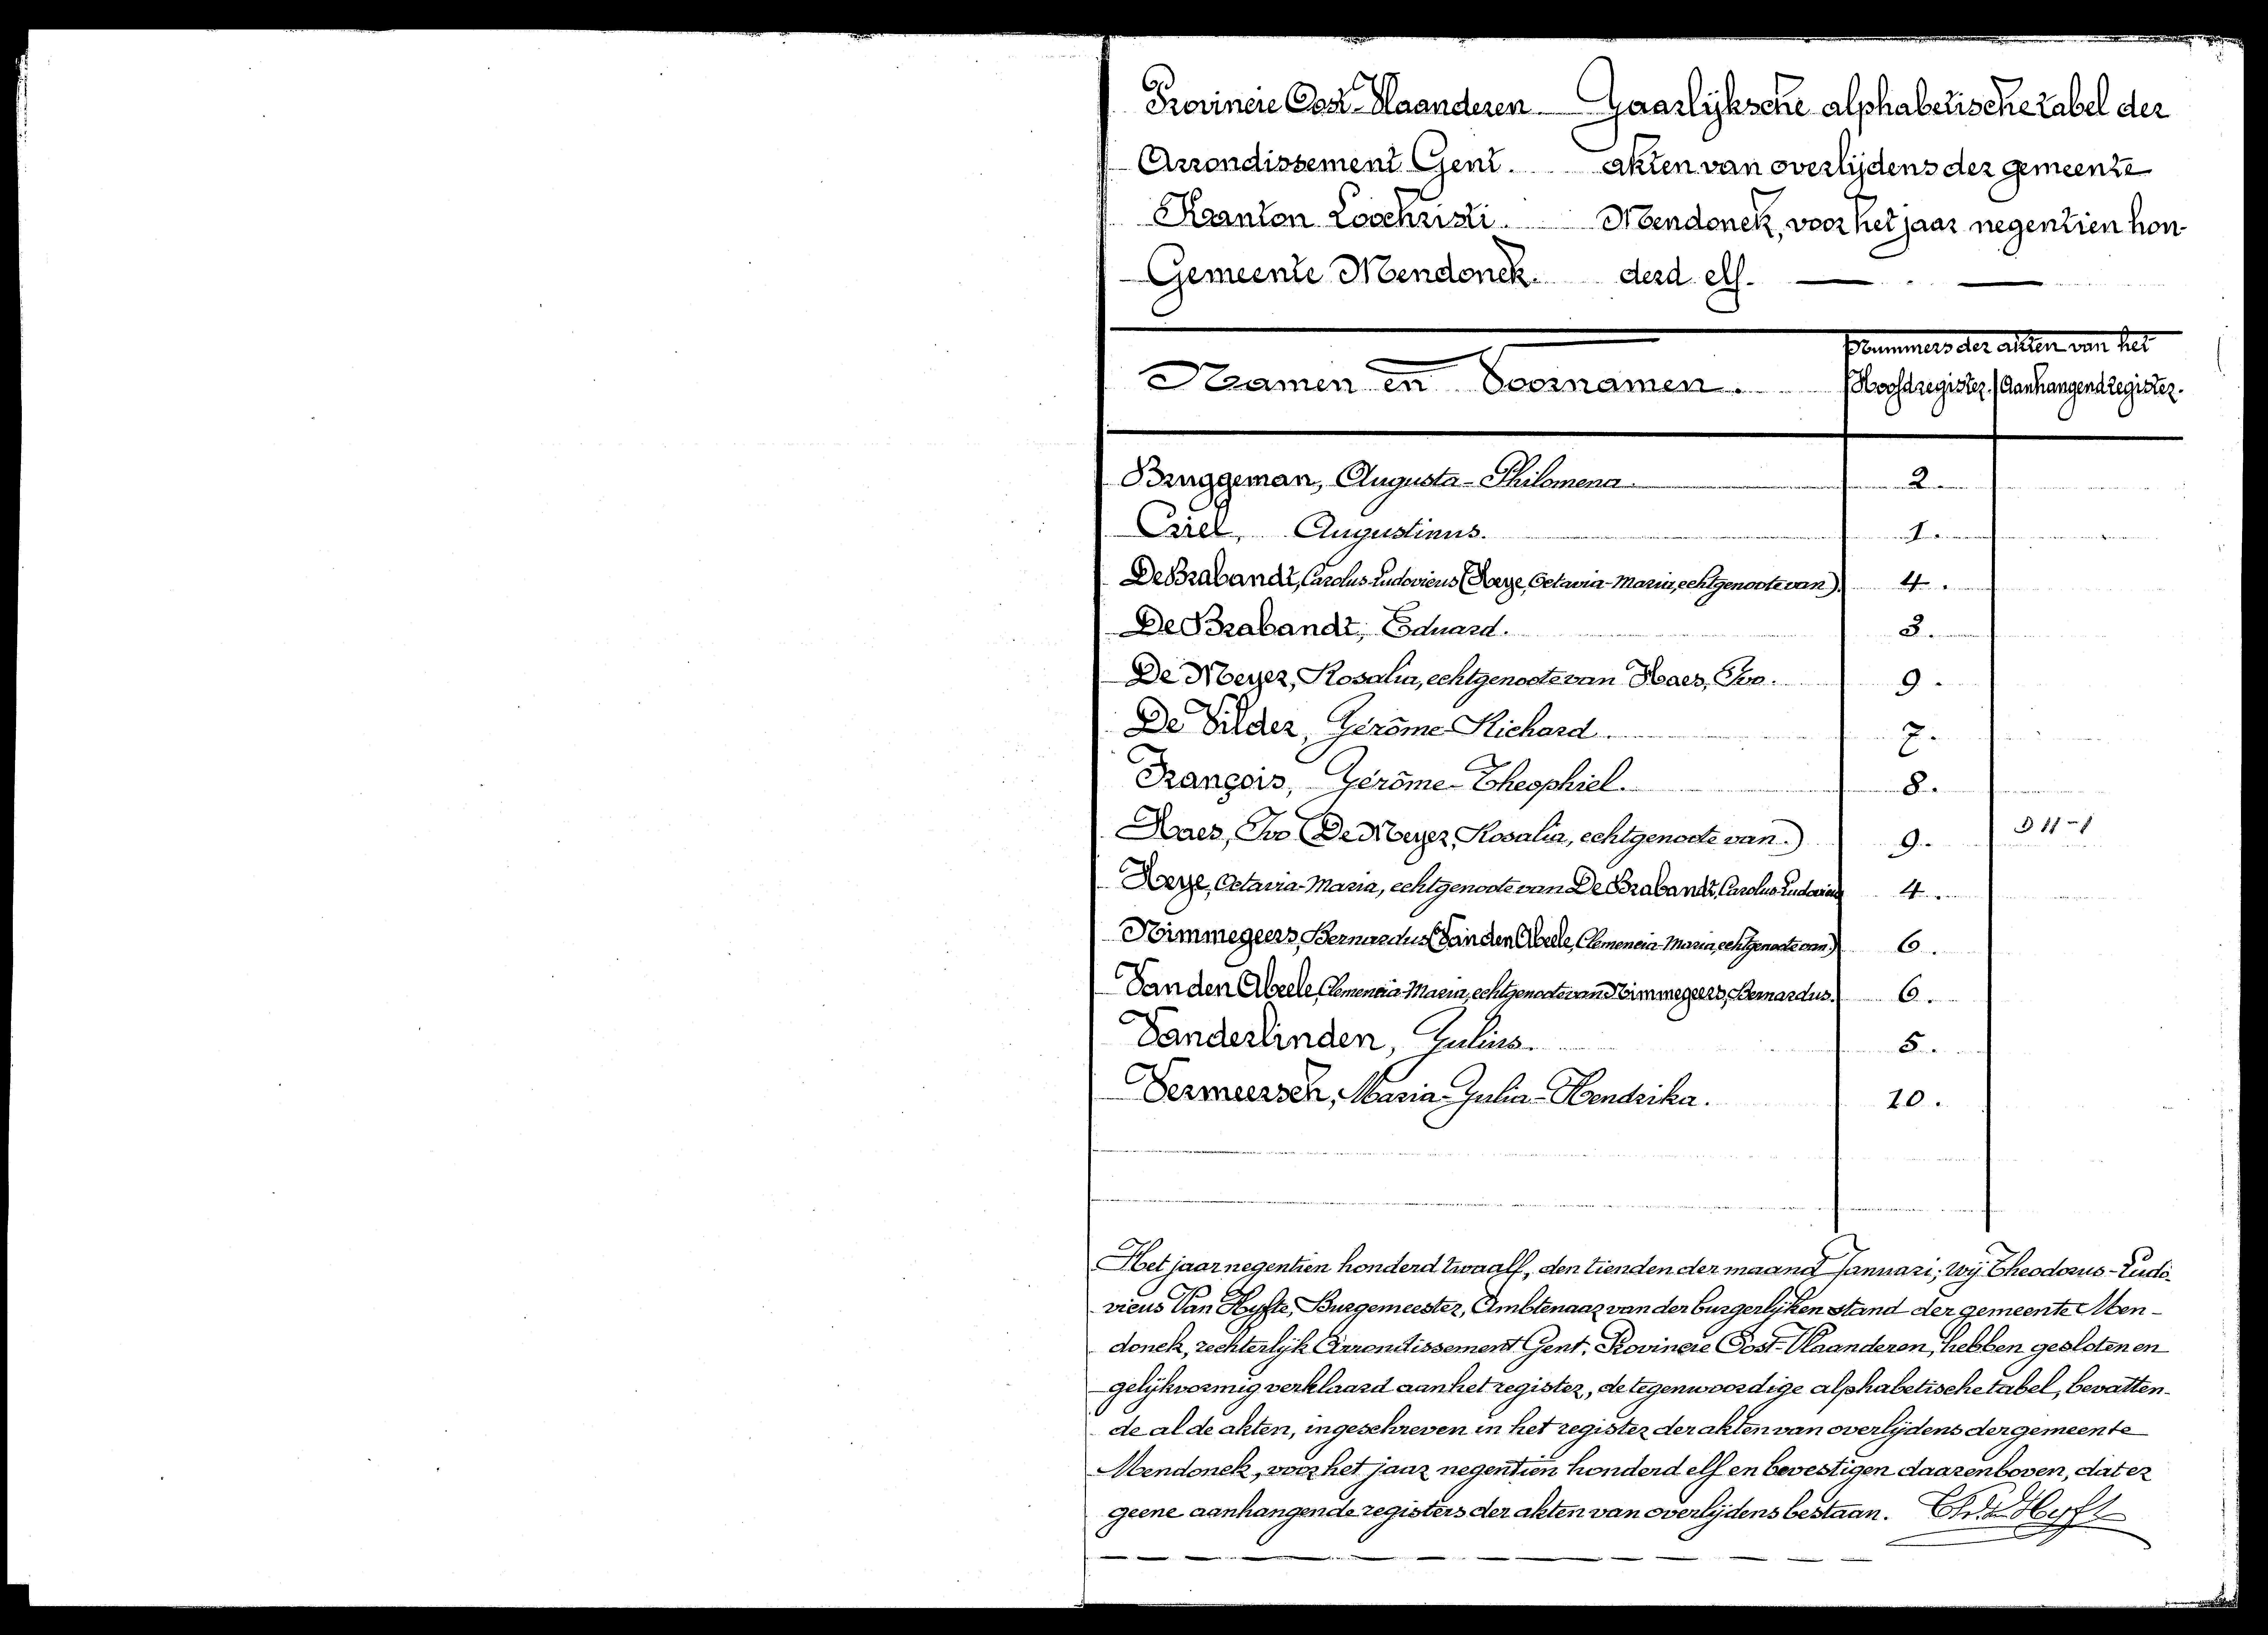 Provincie Oost-Vlaanderen Jaarlijksche alphabetische tabel der
Arrondissement Gent. akten van overlijdens der gemeente
Kanton Loochristi. Mendonck, voor het jaar negentien hon-
Gemeente Mendonck. derd elf.
Nummers der akten van het
Namen en Voornamen. Hoofdregister. Aanhangend register.
Bruggeman, Augusta-Philomena 2.
Criel, Augustinus. 1.
De Brabandt, Carolus-Ludovicus (Heye, Octavia-Maria, echtgenoote van). 4.
De Brabandt, Eduard. 3.
De Meyer, Rosalia, echtgenoote van Haes, Ivo. 9.
De Vilder, Gerôme-Richard. 7.
François, Gérôme-Theophiel. 8.
Haes, Ivo (De Meyer, Rosalia, echtgenoote van.) 9. D 11-1
Heye, Octavia-Maria, echtgenoote van De Brabandt, Carolus-Ludovicus 4.
Nimmegeers, Bernardus (Van den Abeele, Clemencia-Maria, echtgenoote van) 6.
Van den Abeele, Clemencia-Maria, echtgenoote van Nimmegeers, Bernardus. 6.
Vanderlinden, Julius. 5.
Vermeersch, Maria-Julia-Hendrika. 10.
Het jaar negentien honderd twaalf, den tienden der maand Januari; Wij Theodorus-Ludo-
vicus Van Hyfte, Burgemeester, Ambtenaar van der burgerlijken stand der gemeente Men-
donck, rechterlijk Arrondissement Gent, Provincie Oost-Vlaanderen, hebben gesloten en
gelijkvormig verklaard aan het register, de tegenwoordige alphabetische tabel, bevatten-
de al de akten, ingeschreven in het register der akten van overlijdens der gemeente
Mendonck, voor het jaar negentien honderd elf en bevestigen daarenboven, dat er
geene aanhangende registers der akten van overlijdens bestaan.